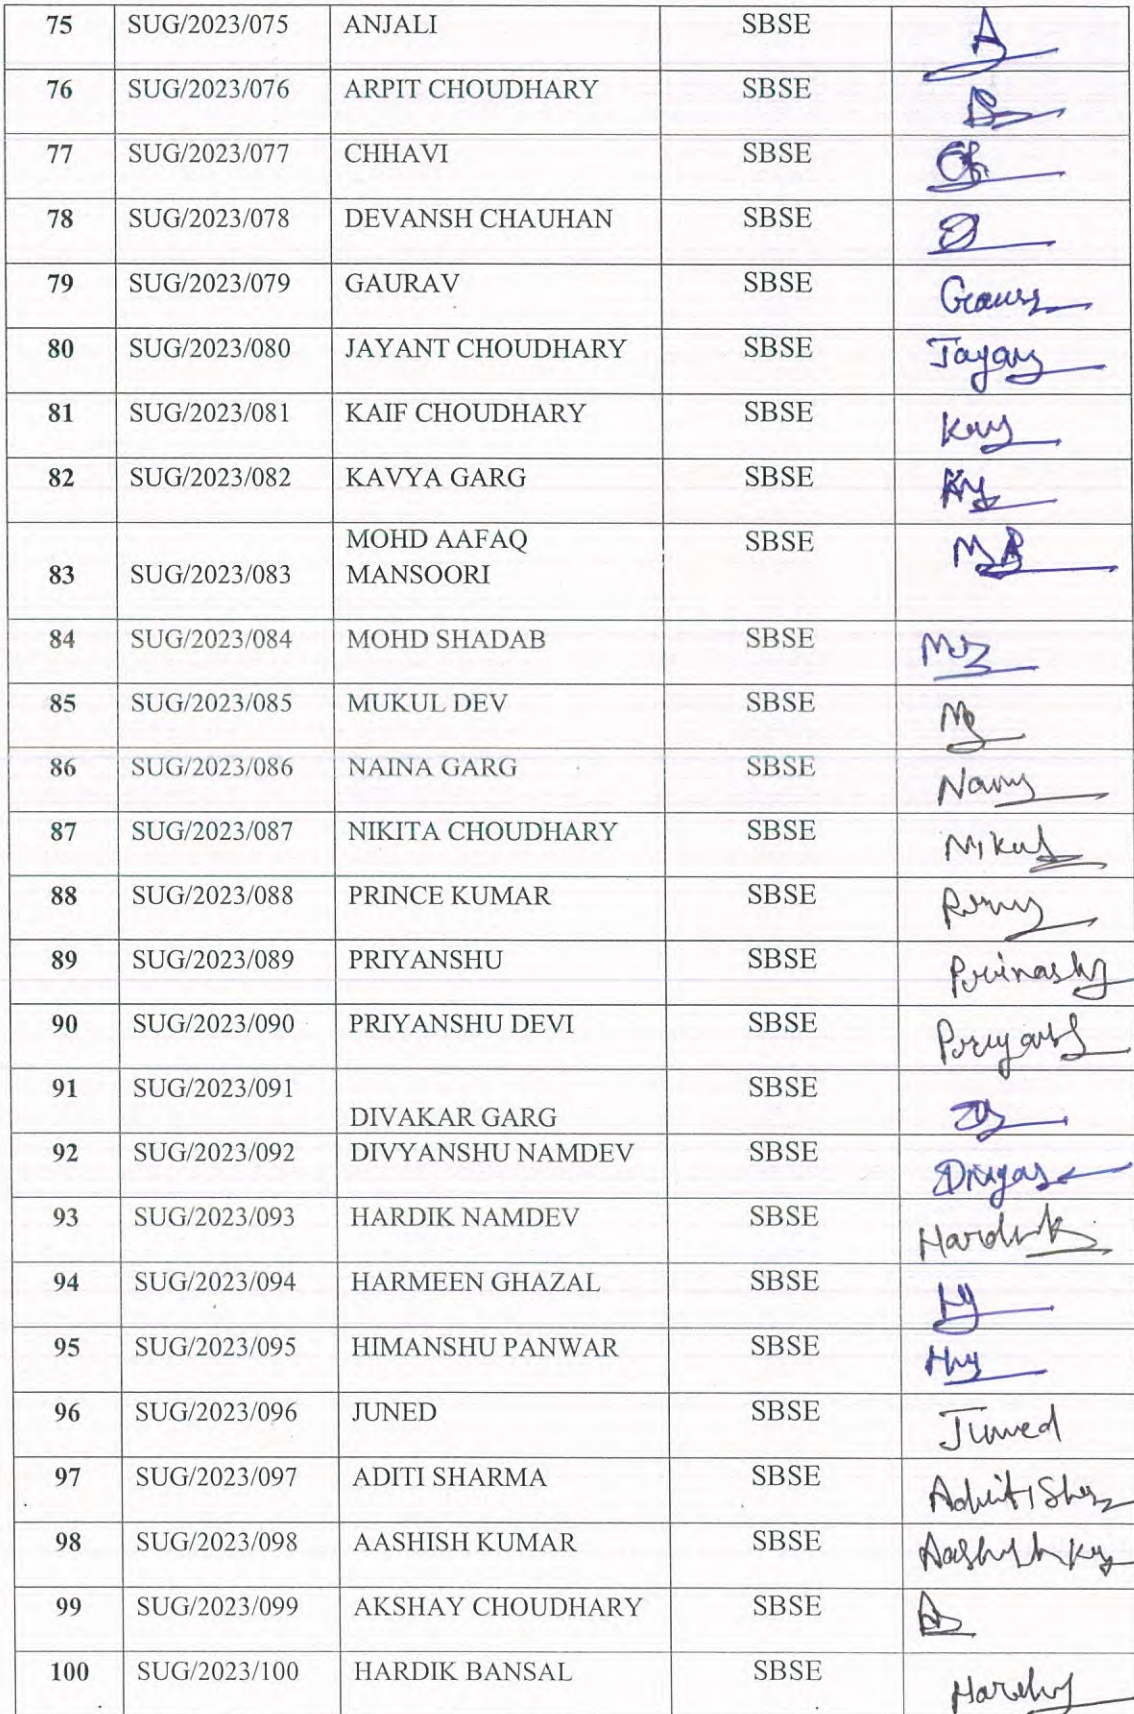 75 SUG/2023/075 ANJALI SBSE
76 SUG/2023/076 ARPIT CHOUDHARY SBSE
77 SUG/2023/077 CHHAVI SBSE
78 SUG/2023/078 DEVANSH CHAUHAN SBSE
79 SUG/2023/079 GAURAV SBSE
80 SUG/2023/080 JAYANT CHOUDHARY SBSE
81 SUG/2023/081 KAIF CHOUDHARY SBSE
82 SUG/2023/082 KAVYA GARG SBSE
MOHD AAFAQ SBSE
83 SUG/2023/083 MANSOORI
84 SUG/2023/084 MOHD SHADAB SBSE
85 SUG/2023/085 MUKUL DEV SBSE
86 SUG/2023/086 NAINA GARG SBSE
87 SUG/2023/087 NIKITA CHOUDHARY SBSE
88 SUG/2023/088 PRINCE KUMAR SBSE
89 SUG/2023/089 PRIYANSHU SBSE
90 SUG/2023/090 PRIYANSHU DEVI SBSE
91 SUG/2023/091 SBSE
DIVAKAR GARG
92 SUG/2023/092 DIVYANSHU NAMDEV SBSE
93 SUG/2023/093 HARDIK NAMDEV SBSE Hardik
94 SUG/2023/094 HARMEEN GHAZAL SBSE
95 SUG/2023/095 HIMANSHU PANWAR SBSE
96 SUG/2023/096 JUNED SBSE Juned
97 SUG/2023/097 ADITI SHARMA SBSE
98 SUG/2023/098 AASHISH KUMAR SBSE
99 SUG/2023/099 AKSHAY CHOUDHARY SBSE
100 SUG/2023/100 HARDIK BANSAL SBSE